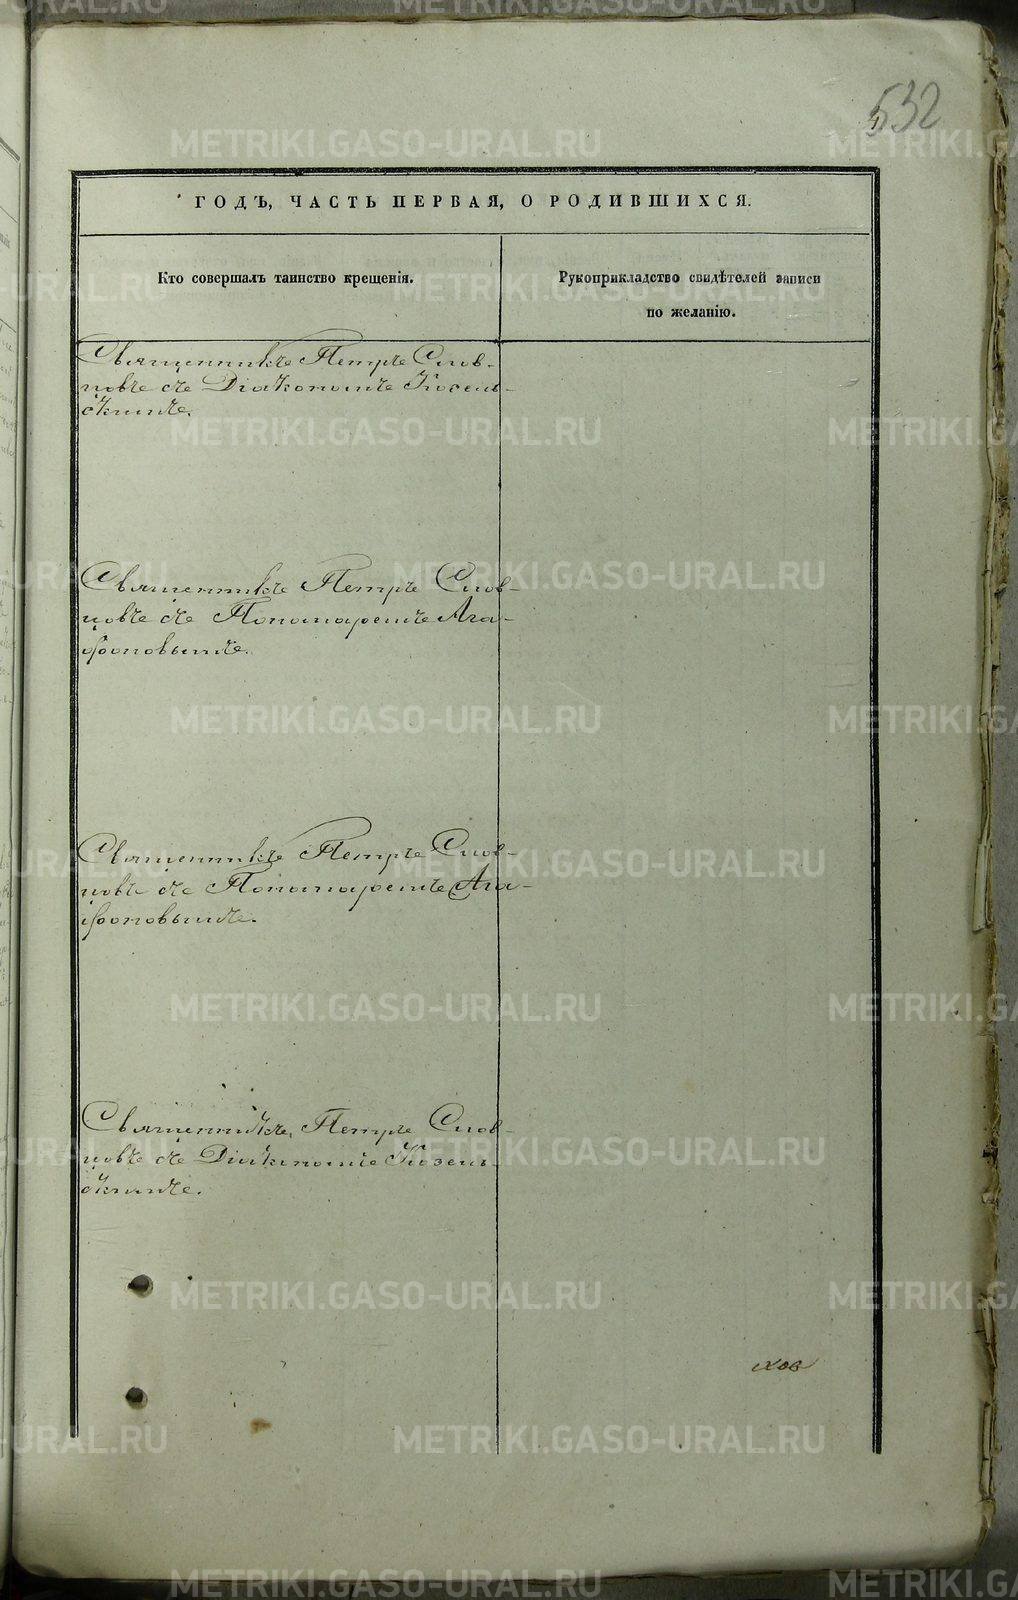 532
ГОДЪ, ЧАСТЬ ПЕРВАЯ, О РОДИВШИХСЯ.
Кто совершалъ таинство крещенія.
Рукоприкладство свидѣтелей записи
по желанію.
Священникъ Петръ Слов-
цовъ съ Діакономъ Козель-
скимъ.
Священникъ Петръ Слов-
цовъ съ Пономаремъ Ага-
фоновымъ.
Священникъ Петръ Слов-
цовъ съ Пономаремъ Ага-
фоновымъ.
Священникъ Петръ Слов-
цовъ съ Діакономъ Козель-
скимъ.
METRIKI.GASO-URAL.RU